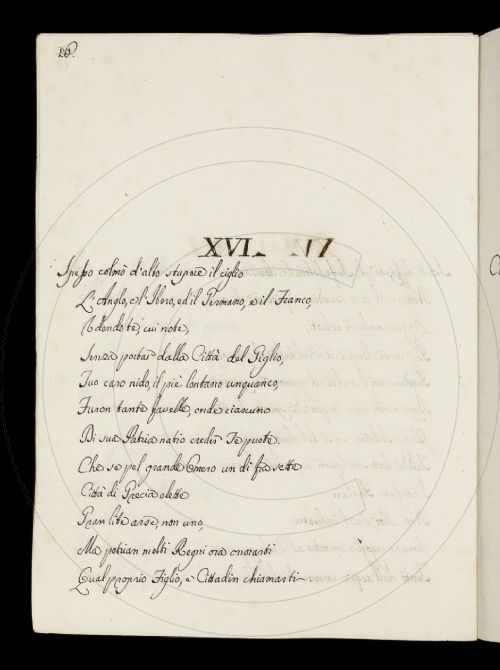 16.
XVI.
Spesso colmò d'alto stupore il ciglio
L'Anglo, e l'Ibero, ed il Germano, e il Franco,
Udendo te, cui note,
Senza portar dalla Città del Giglio,
Tuo caro nido, il piè lontano unquanco,
Furon tante favelle, onde ciascuno
Di sua Patria natio creder Te puote.
Che se pel grande Omero un dì fra sette
Città di Grecia elette
Gran lite arse, non uno,
Ma potrian molti Regni ora onorarti
Qual proprio Figlio, e Cittadin chiamarti